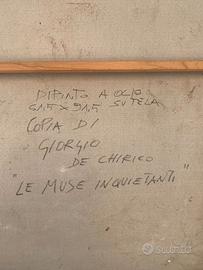 DIPINTO A OLIO
61,5 X 91,5 SU TELA
COPIA DI
GIORGIO
DE CHIRICO
"LE MUSE INQUIETANTI"
subito